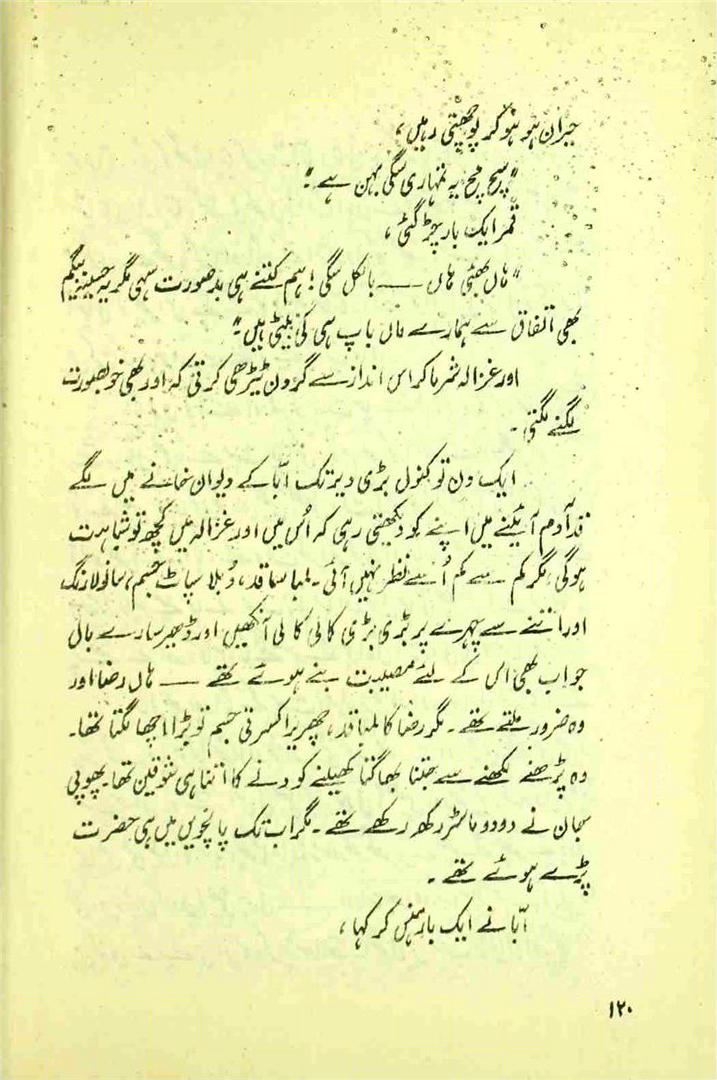 حیران ہو ہو کر پوچھتی رہیں،
"سچ مچ یہ تمہاری سگی بہن ہے۔"
قمر ایک بار چڑ گئی،
"ہاں بھئی ہاں — بالکل سگی! ہم کتنے ہی بدصورت سہی مگر یہ حسینہ بیگم
بھی اتفاق سے ہمارے ماں باپ ہی کی بیٹی ہیں۔"
اور غزالہ شرما کر اس انداز سے گردن ٹیڑھی کرتی کہ اور بھی خوبصورت
لگنے لگتی۔
ایک دن تو کنول بڑی دیر تک ابّا کے دیوان خانے میں لگے
قد آدم آئینے میں اپنے کو دیکھتی رہی کہ اُس میں اور غزالہ میں کچھ تو شباہت
ہوگی، مگر کم سے کم اُسے نظر نہیں آئی۔ لمبا سا قد، دُبلا سپاٹ جسم، سانولا رنگ
اور اتنے سے چہرے پر بڑی بڑی کالی کالی آنکھیں اور ڈھیر سارے بال
جو اب بھی اس کے لئے مصیبت بنے ہوئے تھے — ہاں رضا اور
وہ ضرور ملتے تھے۔ مگر رضا کا لمبا قد، چھریرا کسرتی جسم تو بڑا اچھا لگتا تھا۔
وہ پڑھنے لکھنے سے جتنا بھاگتا کھیلنے کودنے کا اتنا ہی شوقین تھا۔ پھوپی
جان نے دو دو ماسٹر رکھ رکھے تھے۔ مگر اب تک پانچویں میں ہی حضرت
پڑے ہوئے تھے۔
ابّا نے ایک بار ہنس کر کہا،
۱۲۰